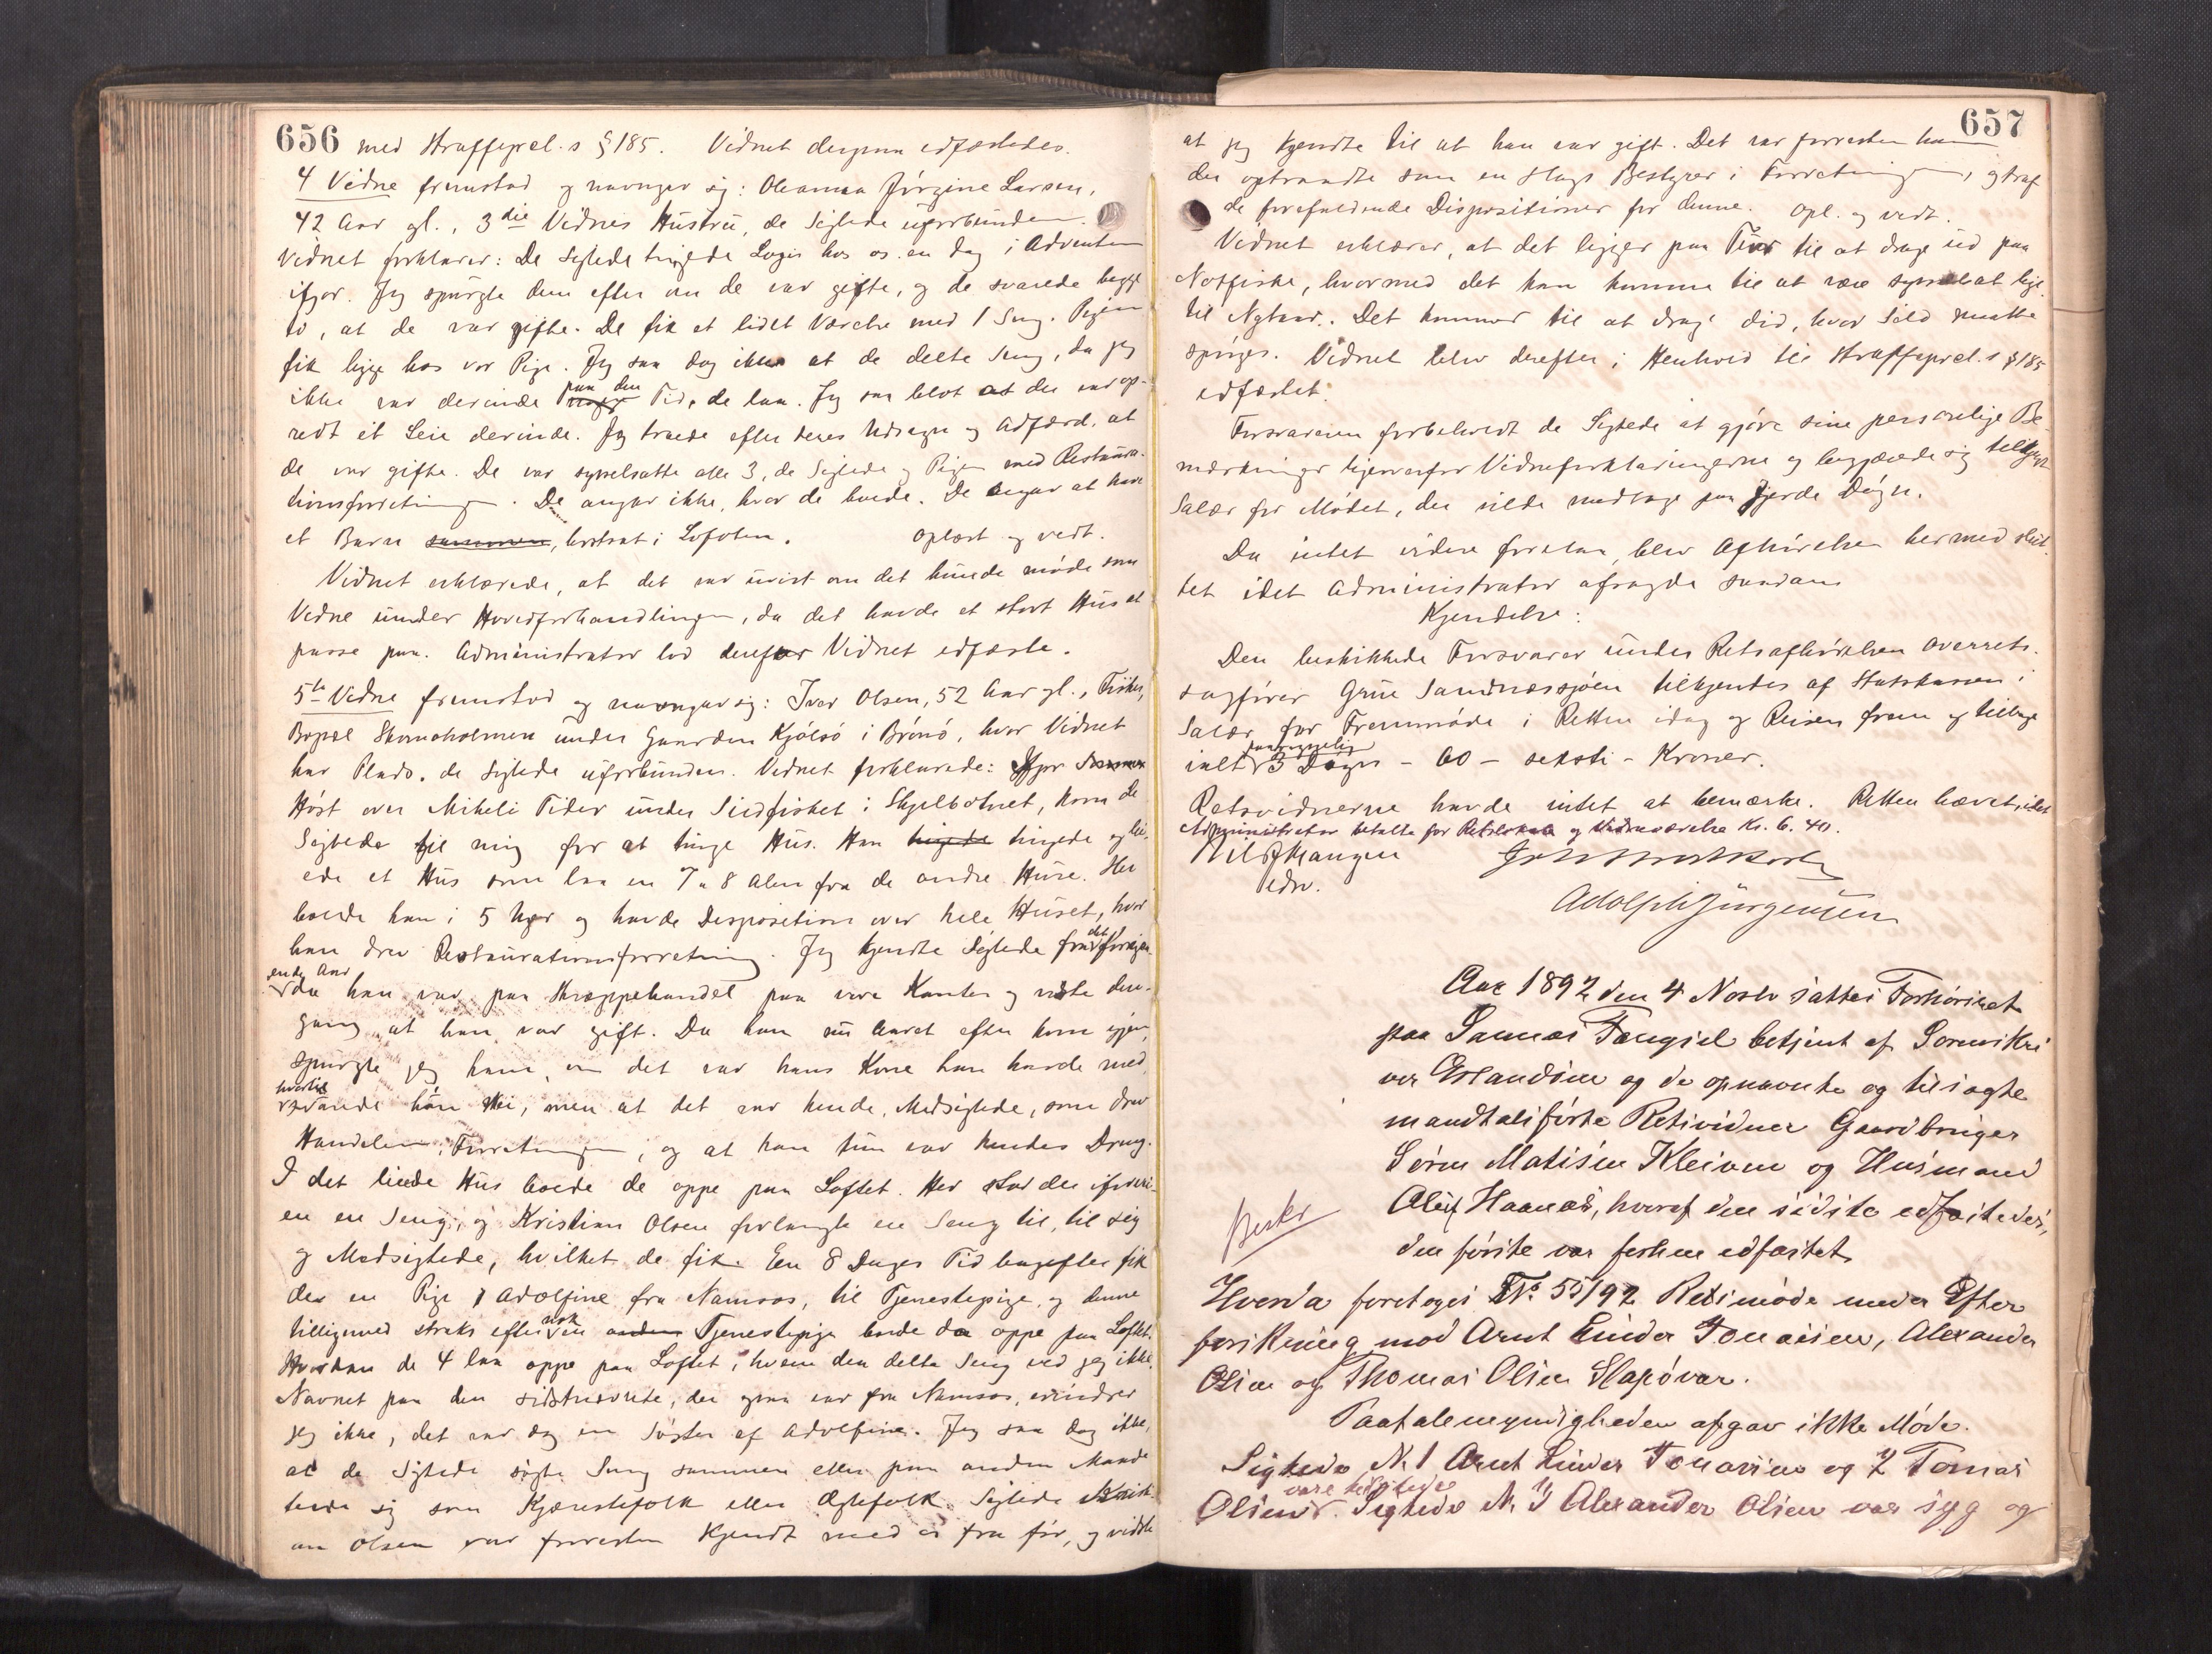 656 med Straffeprcl.s § 185. Vidnet derpaa edfæstedes.
4 Vidne fremstod og navngav sig: Oleanna Jørgine Larsen,
42 Aar gl., 3die Vidnes Hustru, de Sigtede uforbunden.
Vidnet forklarer: De Sigtede tingede Logis hos os en Dag i Adventen
ifjor. Jeg spurgte dem efter om de var gifte, og de svarede begge
to, at de var gifte. De fik et lidet Værelse med 1 Seng. Pigen
fik ligge hos vor Pige. Jeg saa dog ikke at de delte Seng, da jeg
ikke var derinde paa den Tid, de laa. Jeg saa blot at der var op-
redt et Leie derinde. Jeg troede efter deres Udsagn og Adfærd, at
de var gifte. De var sysselsatte alle 3, de Sigtede og Pigen med Restaura-
tionsforretningen. De angav ikke, hvor de boede. De angav at have
et Barn sammen, bortsat i Lofoten. Oplæst og vedt.
Vidnet erklærede, at det var uvist om det kunde møde som
Vidne under Hovedforhandlingen, da det havde et stort Hus at
passe paa. Administrator lod derefter Vidnet edfæste.
5te Vidne fremstod og navngav sig: Iver Olsen, 52 Aar gl., Fisker,
Bopæl Skomoholmen under Gaarden Kjølsø i Brønø, hvor Vidnet
har Plads. de Sigtede uforbunden. Vidnet forklarede: Ifjor
Høst over Mikeli Tider under Sildfisket i Skjelbotnet, kom de
Sigtede til mig for at tinge Hus. Han tingede tingede og lei-
ede et Hus som laa en 7 a 8 Alen fra de andre Huse. Her
boede han i 5 Uger og havde Desposition over hele Huset, hvor
han drev Restaurationsforretning. Jeg kjendte Sigtede fra det foregaa-
ende Aar
da han var paa Skreppehandel paa vore Kanter og vidste den-
gang at han var gift. Da han nu Aaret efter kom igjen,
spurgte jeg ham, om det var hans Kone han havde med,
hvortil
svarede han Nei, men at det var hende, Medsigtede, som drev
Handelen, Forretningen, og at han kun var hendes Dreng.
I det leiede Hus boede de oppe paa Loftet. Her stod der iforvei-
en en Seng, og Kristian Olsen forlangte en Seng til, til sig
og Medsigtede, hvilket de fik. En 8 Dages Tid bagefter fik
de en Pige Adolfine fra Namsos, til Tjenestepige, og denne
tilligemed straks efter nok en anden Tjenestepige boede da oppe paa Loftet.
Hvordan de 4 laa oppe paa Loftet, hvem den delte Seng ved jeg ikke.
Navnet paa den sidstnævnte, der ogsaa var fra Namsos, erindrer
jeg ikke, det var dog en Søster af Adolfine. Jeg saa dog ikke,
at de Sigtede søgte Seng sammen eller paa anden Maade
tede sig som Kjærestefolk eller Ægtefolk. Sigtede Kristi-
an Olsen var forresten kjendt med os fra før, og vidste
657
at jeg kjendte til at han var gift. Det var forresten ham
der optraadte som en Slags Bestyrer i Forretningen, og traf
de forefaldende Dispositioner for denne. Opl. og vedt.
Vidnet erklærer, at det ligger paa Tur til at drage ud paa
Notfiske, hvormed det kan komme til at være sysselsat lige
til Nytaar. Det kommer til at drage did, hvor Sild maatte
spørges. Vidnet blev derefter i Henhold til Straffeprcl.s § 185
edfæstet.
Forsvareren forbeholdt de Sigtede at gjøre sine personlige Be-
mærkninger ligeoverfor Vidneforklaringerne og begjærede sig tilkjendt
Salær for Mødet, der vilde medtage paa fjerde Døgn.
Da intet videre forelaa, blev Afhørelsen hermed slut-
tet idet Administrator afsagde saadan
Kjendelse:
Den beskikkede Forsvarer under Retsafhørelsen Overrets-
sagfører Grüe Sandnessjøen tilkjendes af Statskassen i
Salær for Fremmøde i Retten idag og Reisen frem og tilbage
ialt 3 Døgn - 60 - seksti - Kroner.
Retsvidnerne havde intet at bemærke. Retten hævet, idet
Administrator betalte for Retslokale og Vidneværelse Kr. 6.40.
edsv.
Adolph Jürgensen
Aar 1892 den 4 Novbr sattes Forhørsret
paa Sannes Fængsel betjent af Sorenskri
ver Erlandsen og de opnævnte og tilsagte
mandtalsførte Retsvidner Gaardbruger
Søren Matisen Kleiven og Husmand
Oluf Haanes, hvoraf den sidste edfæstedes,
den første var forhen edfæstet.
Hvorda foretoges No 55/92 Retsmøde under Efter
forskning mod Arnt Linder Tomassen, Alexander
Olsen og Thomas Olsen Slapøvær.
Paatalemyndigheden afgav ikke Møde.
Sigtede N. 1 Arnt Linder Tomassen og 2 Tomas
Olsen vare tilstede. Sigtede N. 3 Alexander Olsen var syg og